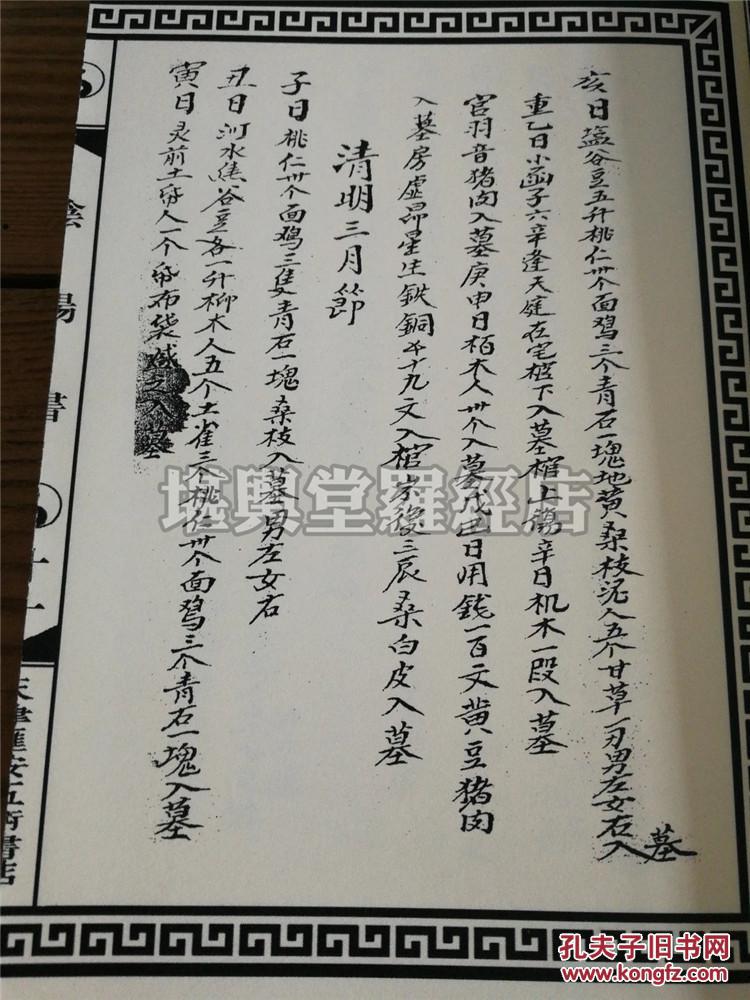 亥日盐谷豆五升桃仁卅个面鸡三个青石一塊地黄桑枝泥人五个甘草一刃男左女右入墓
重乙日小函子六辛逢天庭在宅标下入墓棺上傷辛日机木一段入墓
宫羽音猪肉入墓庚申日柏木人卅个入墓戊 日用钱一百文黄豆猪肉
入墓房虚昴星庄鉄銅 十九文入棺 後三辰桑白皮入墓
清明三月節
子日桃仁卅个面鸡三隻青石一塊桑枝入墓男左女右
丑日河水焦谷豆各一升柳木人五个土雀三个桃仁卅个面鸡三个青石一塊入墓
寅日灵前土 人一个 布袋 之入墓
陰陽書
十一
天津匯安五術書店
堪興堂羅經店
孔夫子旧书网
kongfz.com